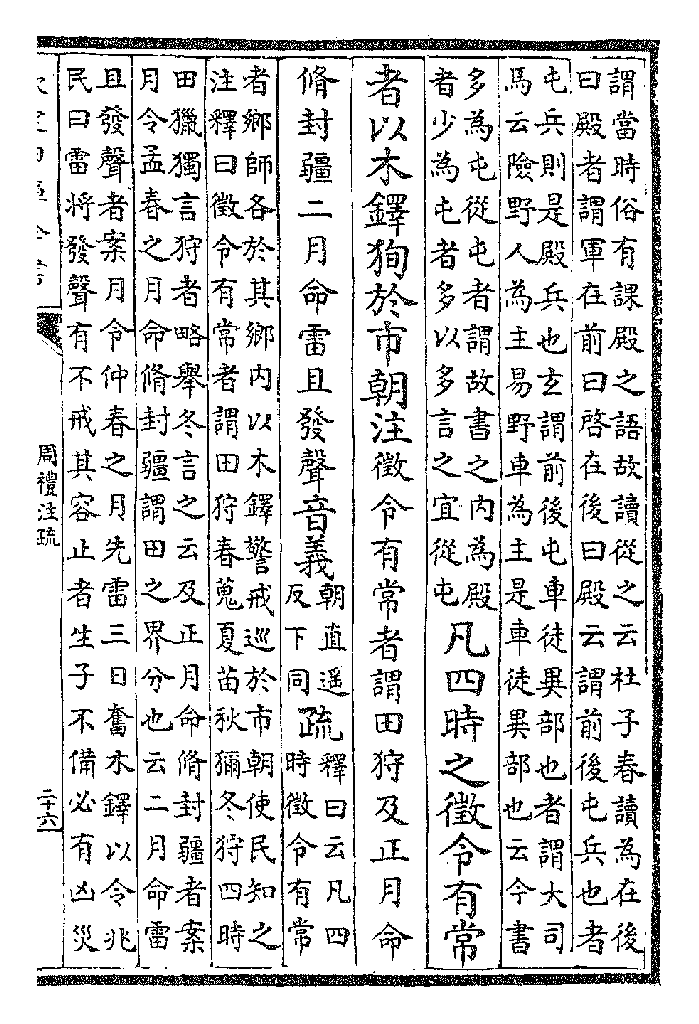 謂當時俗有課殿之語故讀從之云杜子春讀為在後
曰殿者謂軍在前曰啓在後曰殿云謂前後屯兵也者
屯兵則是殿兵也玄謂前後屯車徒異部也者謂大司
馬云險野人為主易野車為主是車徒異部也云今書
多為屯從屯者謂故書之内為殿
者少為屯者多以多言之宜從屯
凡四時之徵令有常
者以木鐸狥於市朝注徵令有常者謂田狩及正月命
脩封疆二月命雷且發聲音義
朝直遥
反下同
疏
釋曰云凡四
時徵令有常
者鄉師各於其鄉内以木鐸警戒巡於市朝使民知之
注釋曰徵令有常者謂田狩春蒐夏苗秋獮冬狩四時
田獵獨言狩者略舉冬言之云及正月命脩封疆者案
月令孟春之月命脩封疆謂田之界分也云二月命雷
且發聲者案月令仲春之月先雷三日奮木鐸以令兆
民曰雷將發聲有不戒其容止者生子不備必有凶災
周禮注疏
二十六